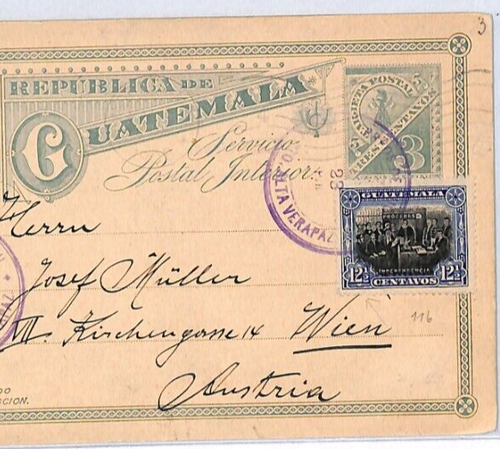 3
REPUBLICA DE
GUATEMALA
Servicio
Postal Interior.
TARJETA POSTAL
3
TRES CENTAVOS
3
ALTA VERAPAZ
23
GUATEMALA
INDEPENDENCIA
12½ 12½
CENTAVOS
116
Herrn
Josef Müller
VII. Kirchengasse 14 Wien
Austria